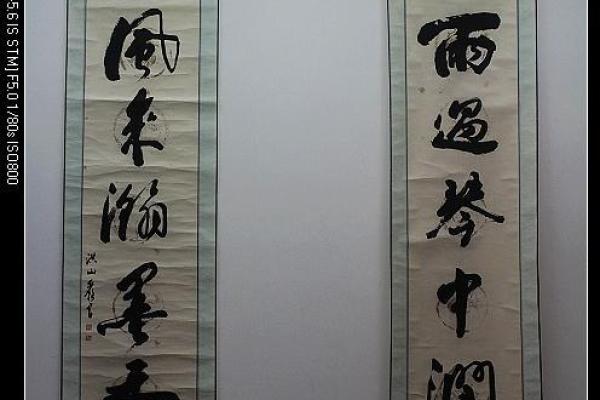 雨過琴中潤
風來瀚墨
洪山
5.6 IS STM] F5.0 1/80s ISO800